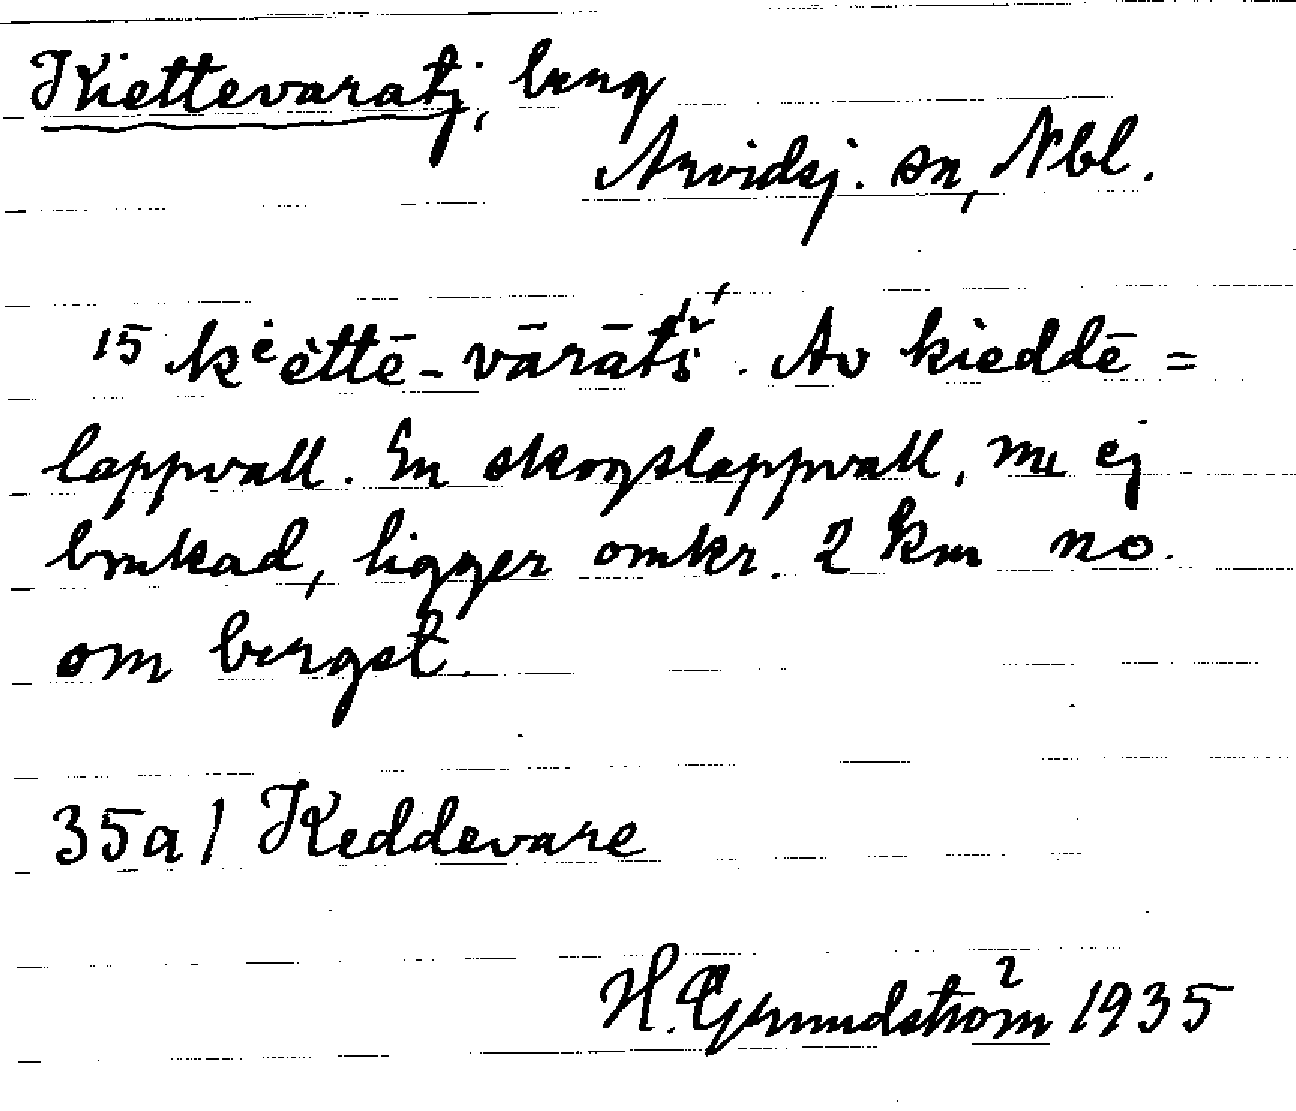 Kiettevaratj, berg
Arvidsj. sn, Nbl.
15 kièttē-vārātš́. Av kieddē =
lappvall. En skogslappvall, nu ej
brukad, ligger omkr. 2 km no.
om berget.
35a/ Keddevare
H. Grundström 1935